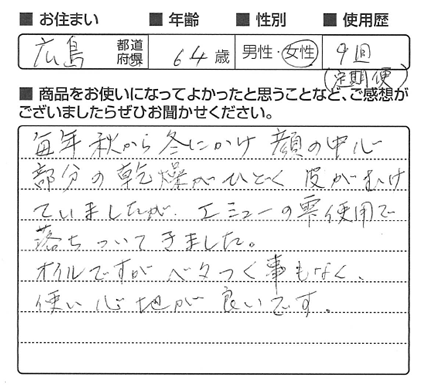 ■ お住まい ■ 年齢 ■ 性別 ■ 使用歴
広島 都道府県 64歳 男性・女性 9回
(定期便)
■ 商品をお使いになってよかったと思うことなど、ご感想が
ございましたらぜひお聞かせください。
毎年秋から冬にかけ 顔の中心
部分の乾燥がひどく 皮がむけ
ていましたが、エミューの雫使用で
落ちついてきました。
オイルですが ベタつく事もなく、
使い心地が良いです。